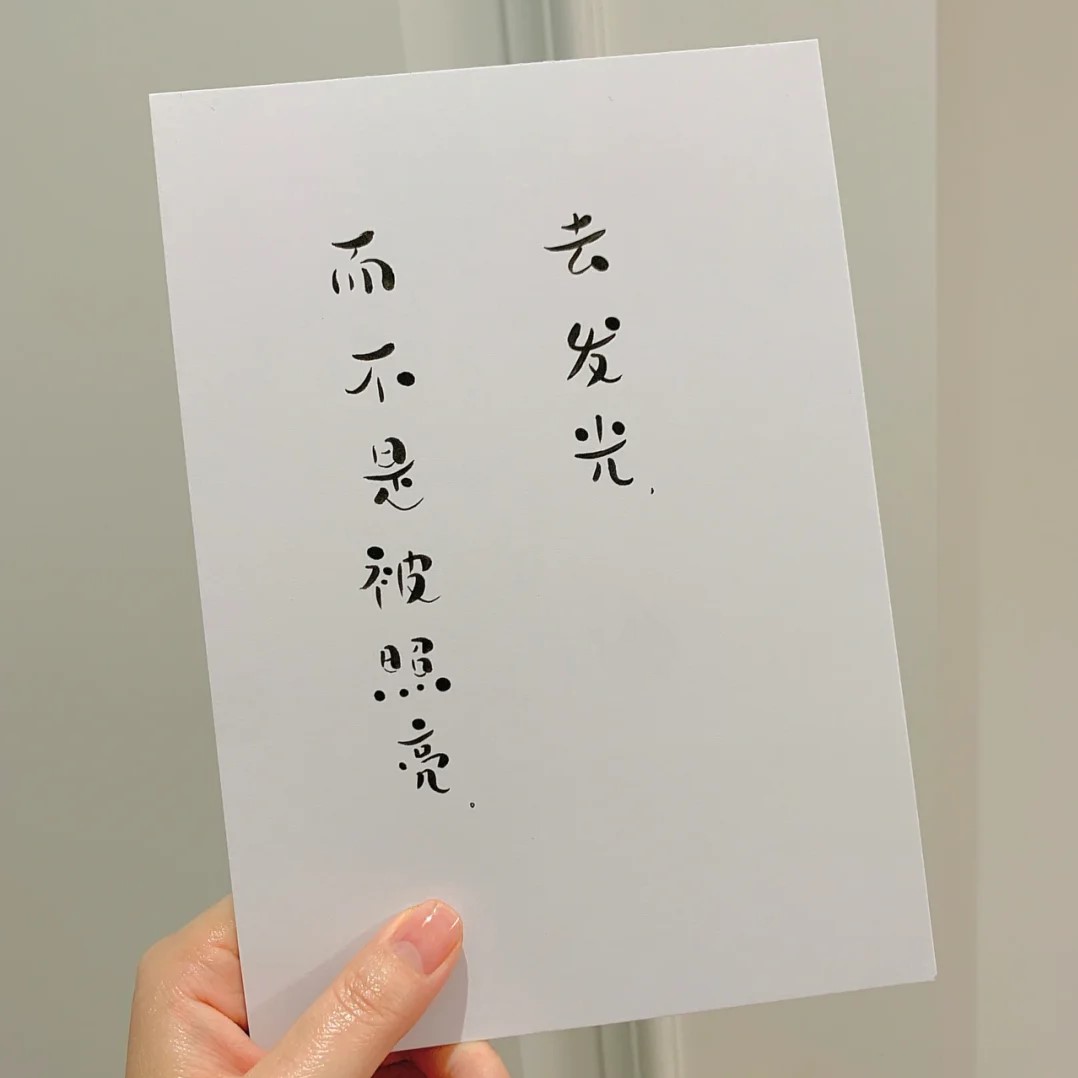 去发光，
而不是被照亮。